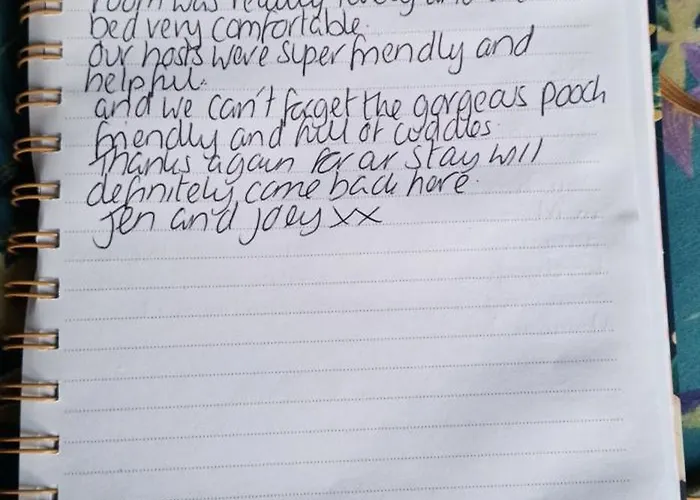 room was really lovely and the
bed very comfortable.
our hosts were super friendly and
helpful.
and we can't forget the gorgeous pooch
friendly and full of cuddles.
Thanks again for our stay will
definitely come back here.
Jen and Joey xx